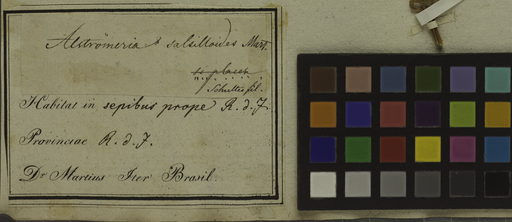 Alströmeria salsilloides Mart.
Schultes fil.
Habitat in sepibus prope R. d. J.
Provinciae R. d. J.
Dr Martius Iter Brasil.